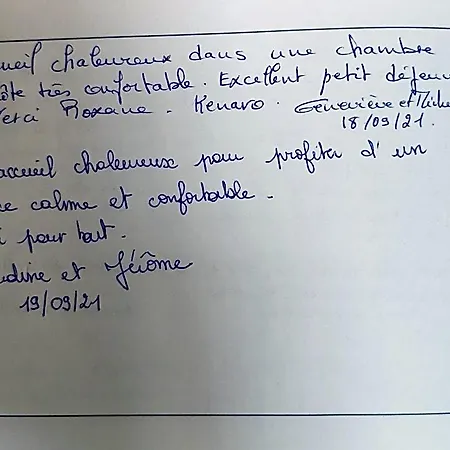 ueil chaleureux dans une chambre
ôte très confortable. Excellent petit déjeun
erci Roxane. Kenavo. Geneviève et Miche
18/09/21.
accueil chaleureux pour profiter d'un
ce calme et confortable.
i pour tout.
udine et Jérôme
19/09/21